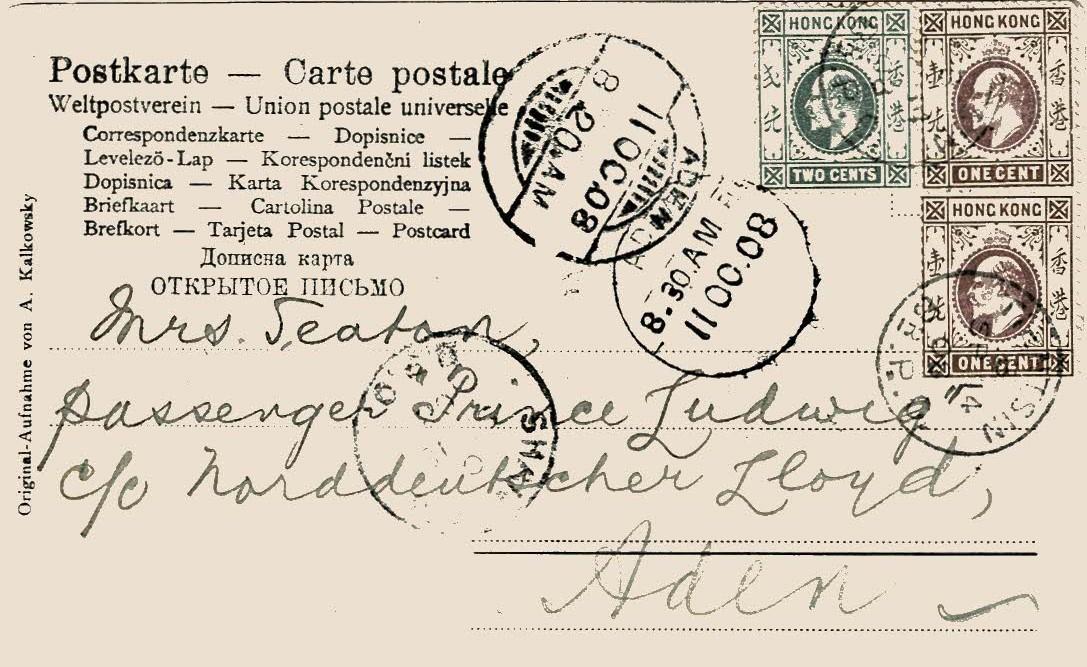 Postkarte — Carte postale
Weltpostverein — Union postale universelle
Correspondenzkarte — Dopisnice —
Levelező-Lap — Korespondenčni listek
Dopisnica — Karta Korespondenzyjna
Briefkaart — Cartolina Postale —
Brefkort — Tarjeta Postal — Postcard
Дописна карта
ОТКРЫТОЕ ПИСЬМО
Original-Aufnahme von A. Kalkowsky
HONG KONG
香港
TWO CENTS
HONG KONG
香港
壹
ONE CENT
HONG KONG
香港
壹
ONE CENT
8
20 AM
11 OC 08
ADEN
8.30 AM
11 OC 08
Mrs. Seaton,
passenger Prince Ludwig
c/o Norddeutscher Lloyd,
Aden